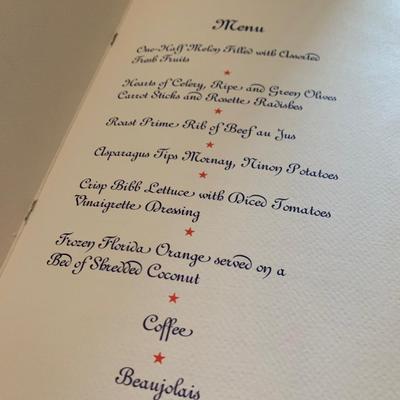 Menu
One-Half Melon Filled with Assorted
Fresh Fruits
Hearts of Celery, Ripe and Green Olives
Carrot Sticks and Rosette Radishes
Roast Prime Rib of Beef au Jus
Asparagus Tips Mornay, Ninon Potatoes
Crisp Bibb Lettuce with Diced Tomatoes
Vinaigrette Dressing
Frozen Florida Orange served on a
Bed of Shredded Coconut
Coffee
Beaujolais